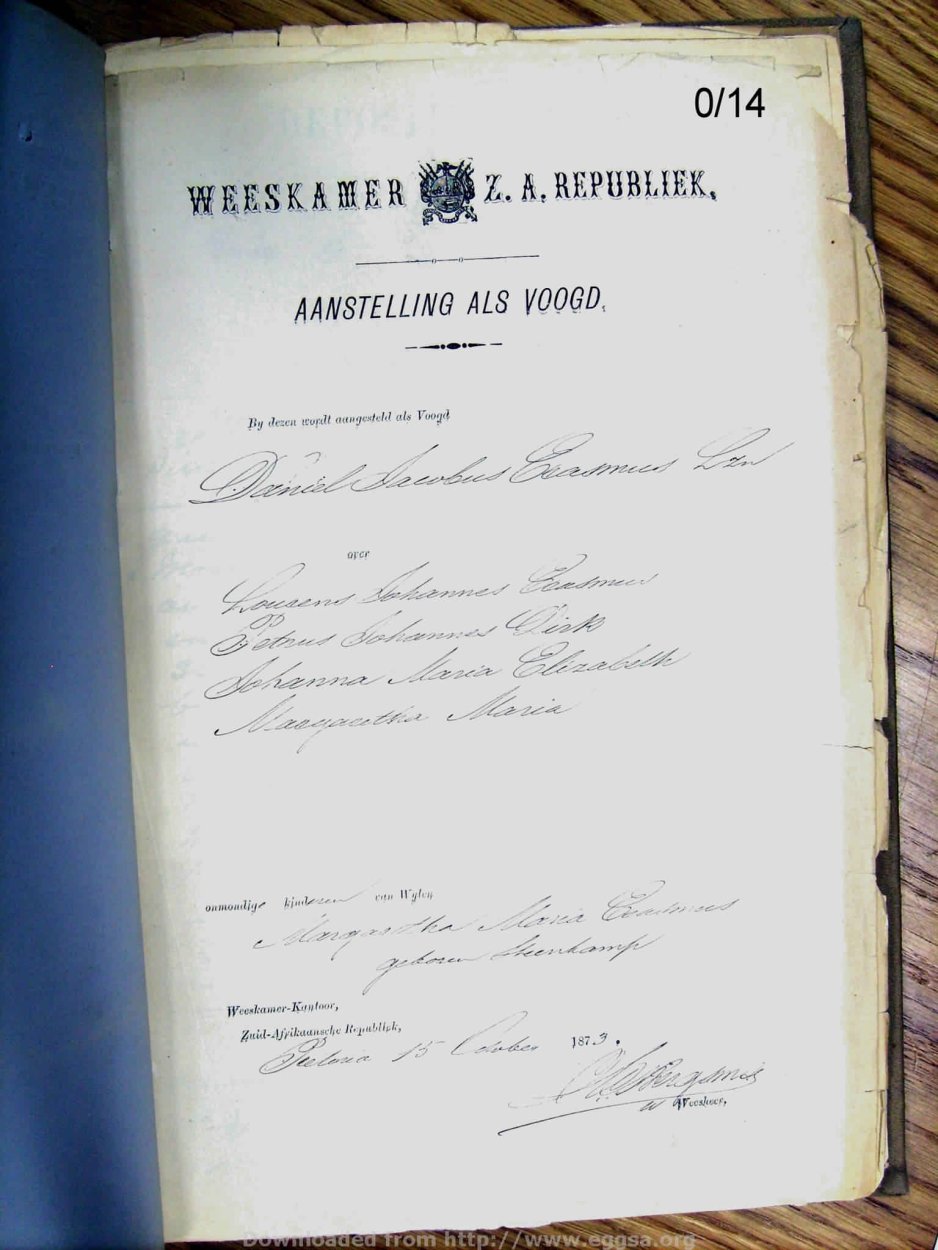 0/14
WEESKAMER Z. A. REPUBLIEK,
AANSTELLING ALS VOOGD,
By dezen wordt aangesteld als Voogd
Daniel Jacobus Erasmus Lzn
over
Lourens Johannes Erasmus
Petrus Johannes Dirk
Johanna Maria Elizabeth
Margaretha Maria
onmondige kinderen van Wylen
Margaretha Maria Erasmus
geboren Steenkamp
Weeskamer-Kantoor,
Zuid-Afrikaansche Republiek,
Pretoria 15 October 1873.
Weesheer,
Downloaded from http://www.eggsa.org